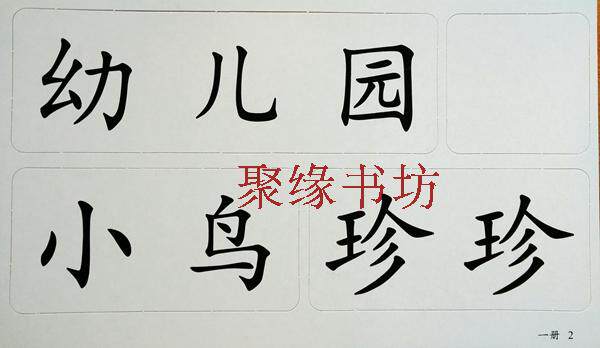 幼儿园
聚缘书坊
小鸟 珍珍
一册 2